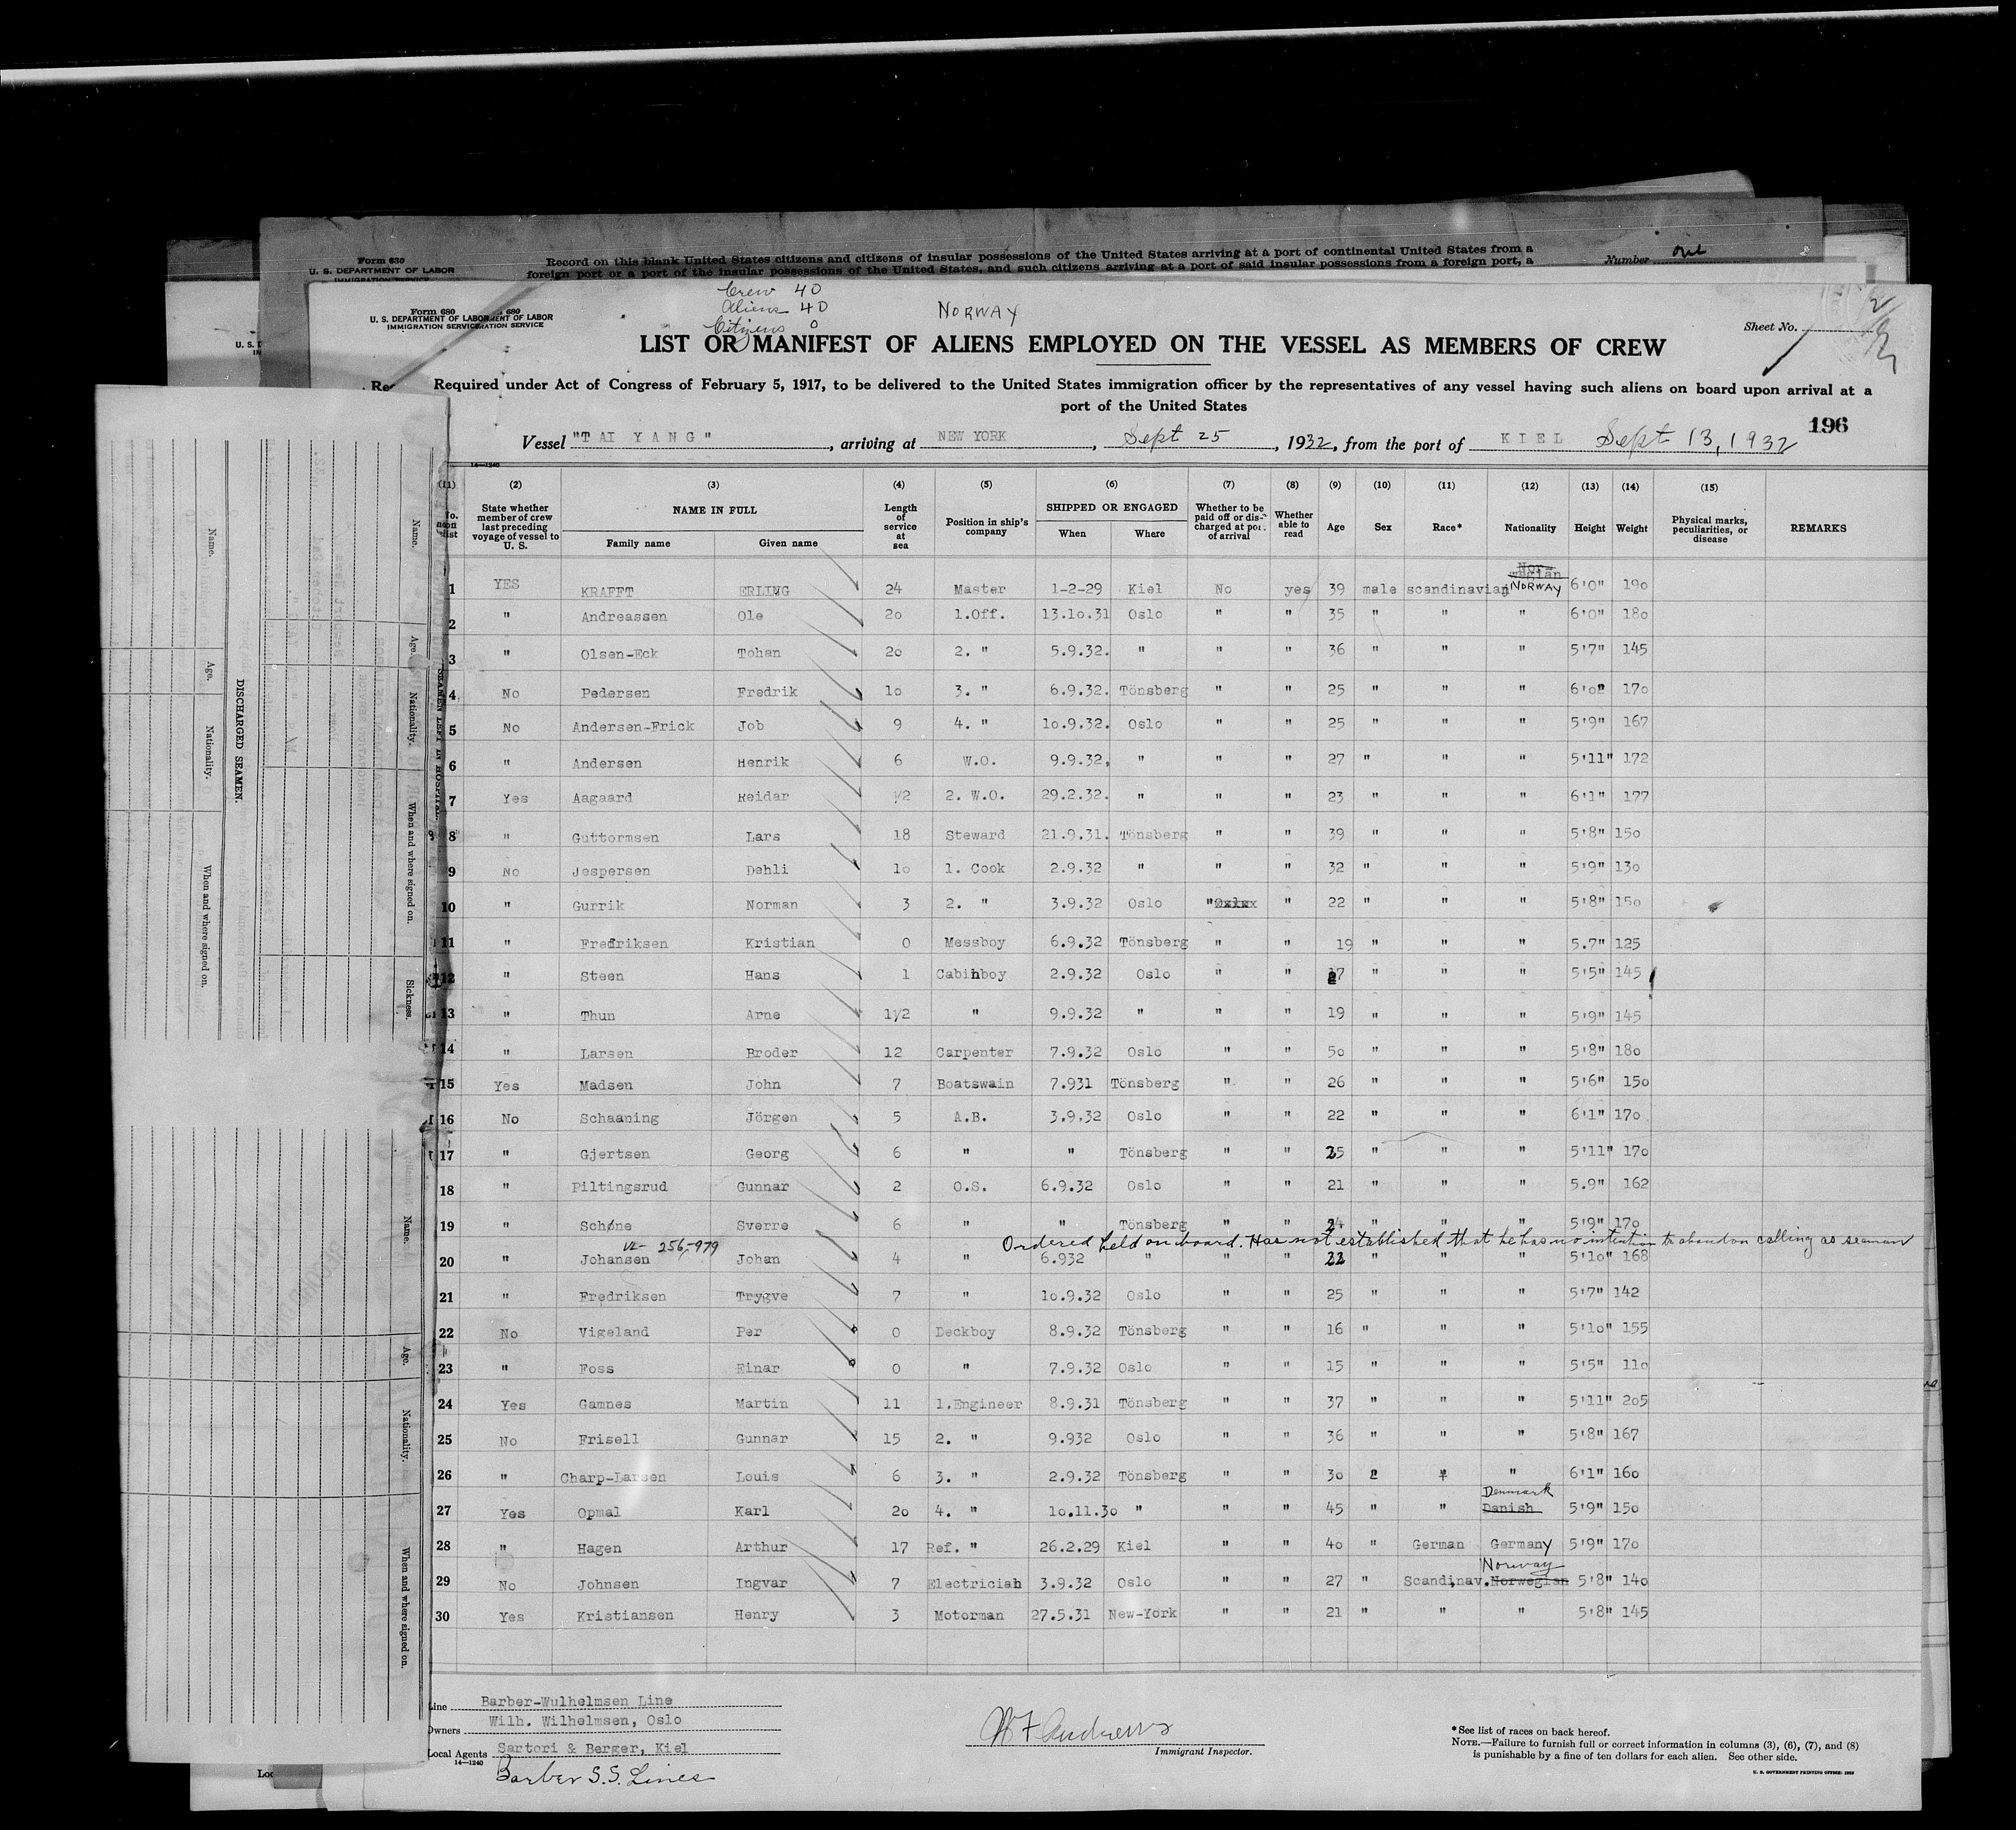 Form 630
U. S. DEPARTMENT OF LABOR
IMMIGRATION SERVICE
Record on this blank United States citizens and citizens of insular possessions of the United States arriving at a port of continental United States from a
foreign port or a port of the insular possessions of the United States, and such citizens arriving at a port of said insular possessions from a foreign port, a
Number one
Crew 40
Aliens 40
Citizens 0
NORWAY
Form 680
U. S. DEPARTMENT OF LABOR
IMMIGRATION SERVICE
Sheet No.
LIST OR MANIFEST OF ALIENS EMPLOYED ON THE VESSEL AS MEMBERS OF CREW
Required under Act of Congress of February 5, 1917, to be delivered to the United States immigration officer by the representatives of any vessel having such aliens on board upon arrival at a
port of the United States
196
Vessel "T AI Y A N G", arriving at NEW YORK, Sept 25, 1932, from the port of K I E L Sept 13, 1932
14—1240
(1) (2) (3) (4) (5) (6) (7) (8) (9) (10) (11) (12) (13) (14) (15)
No. on list State whether member of crew last preceding voyage of vessel to U. S. NAME IN FULL Family name Given name Length of service at sea Position in ship's company SHIPPED OR ENGAGED When Where Whether to be paid off or discharged at port of arrival Whether able to read Age Sex Race* Nationality Height Weight Physical marks, peculiarities, or disease REMARKS
1 YES KRAFFT ERLING 24 Master 1-2-29 Kiel No yes 39 male scandinavian Norwegian NORWAY 6'0" 190
2 " Andreassen Ole 20 1.Off. 13.10.31 Oslo " " 35 " " " 6'0" 180
3 " Olsen-Eck Tohan 20 2. " 5.9.32. " " " 36 " " " 5'7" 145
4 No Pedersen Fredrik 10 3. " 6.9.32. Tönsberg " " 25 " " " 6'0" 170
5 No Andersen-Erick Job 9 4. " 10.9.32. Oslo " " 25 " " " 5'9" 167
6 " Andersen Henrik 6 W.O. 9.9.32, " " " 27 " " " 5'11" 172
7 Yes Aagaard Reidar 1/2 2. W.O. 29.2.32. " " " 23 " " " 6'1" 177
8 " Guttormsen Lars 18 Steward 21.9.31. Tönsberg " " 39 " " " 5'8" 150
9 No Jespersen Dehli 10 1. Cook 2.9.32 " " " 32 " " " 5'9" 130
10 " Gurrik Norman 3 2. " 3.9.32 Oslo " " 22 " " " 5'8" 150
11 " Fredriksen Kristian 0 Messboy 6.9.32 Tönsberg " " 19 " " " 5.7" 125
12 " Steen Hans 1 Cabinboy 2.9.32 Oslo " " 17 " " " 5'5" 145
13 " Thun Arne 11/2 " 9.9.32 " " " 19 " " " 5'9" 145
14 " Larsen Broder 12 Carpenter 7.9.32 Oslo " " 50 " " " 5'8" 180
15 Yes Madsen John 7 Boatswain 7.931 Tönsberg " " 26 " " " 5'6" 150
16 No Schaaning Jörgen 5 A.B. 3.9.32 Oslo " " 22 " " " 6'1" 170
17 " Gjertsen Georg 6 " " Tönsberg " " 25 " " " 5'11" 170
18 " Piltingsrud Gunnar 2 O.S. 6.9.32 Oslo " " 21 " " " 5.9" 162
19 " Schøne Sverre 6 " " Tönsberg " " 24 " " " 5'9" 170
256-979 Ordered held on board. Has not established that he has no intention to abandon calling as seaman
20 " Johansen Johan 4 " 6.932 " " " 22 " " " 5'10" 168
21 " Fredriksen Trygve 7 " 10.9.32 Oslo " " 25 " " " 5'7" 142
22 No Vigeland Per 0 Deckboy 8.9.32 Tönsberg " " 16 " " " 5'10" 155
23 " Foss Einar 0 " 7.9.32 Oslo " " 15 " " " 5'5" 110
24 Yes Gamnes Martin 11 1.Engineer 8.9.31 Tönsberg " " 37 " " " 5'11" 205
25 No Frisell Gunnar 15 2. " 9.932 Oslo " " 36 " " " 5'8" 167
26 " Charp-Larsen Louis 6 3. " 2.9.32 Tönsberg " " 30 " " " 6'1" 160
27 Yes Opmal Karl 20 4. " 10.11.30 " " " 45 " " Danish Denmark 5'9" 150
28 " Hagen Arthur 17 Ref. " 26.2.29 Kiel " " 40 " German Germany 5'9" 170
29 No Johnsen Ingvar 7 Electrician 3.9.32 Oslo " " 27 " Scandinav. Norwegian Norway 5'8" 140
30 Yes Kristiansen Henry 3 Motorman 27.5.31 New-York " " 21 " " " 5'8" 145
Line Barber-Wulhelmsen Line
Owners Wilh. Wilhelmsen, Oslo
Local Agents Sartori & Berger, Kiel
14—1240
Barber S.S. Lines
W F Andrews
Immigrant Inspector.
*See list of races on back hereof.
NOTE.—Failure to furnish full or correct information in columns (3), (6), (7), and (8)
is punishable by a fine of ten dollars for each alien. See other side.
U. S. GOVERNMENT PRINTING OFFICE: 1929
SEAMEN LEFT IN HOSPITAL
Name. Age. Nationality. When and where signed on. Sickness.
DISCHARGED SEAMEN.
Name. Age. Nationality. When and where signed on.
Name. Age. Nationality. When and where signed on.